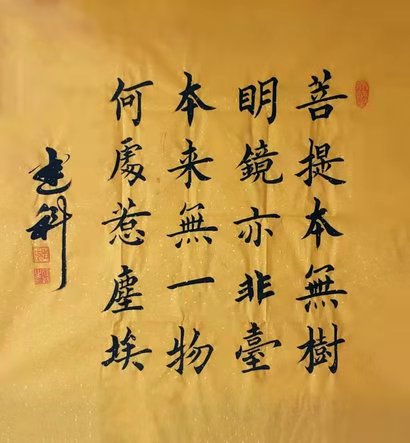 菩提本無樹
明鏡亦非臺
本来無一物
何處惹塵埃
建科